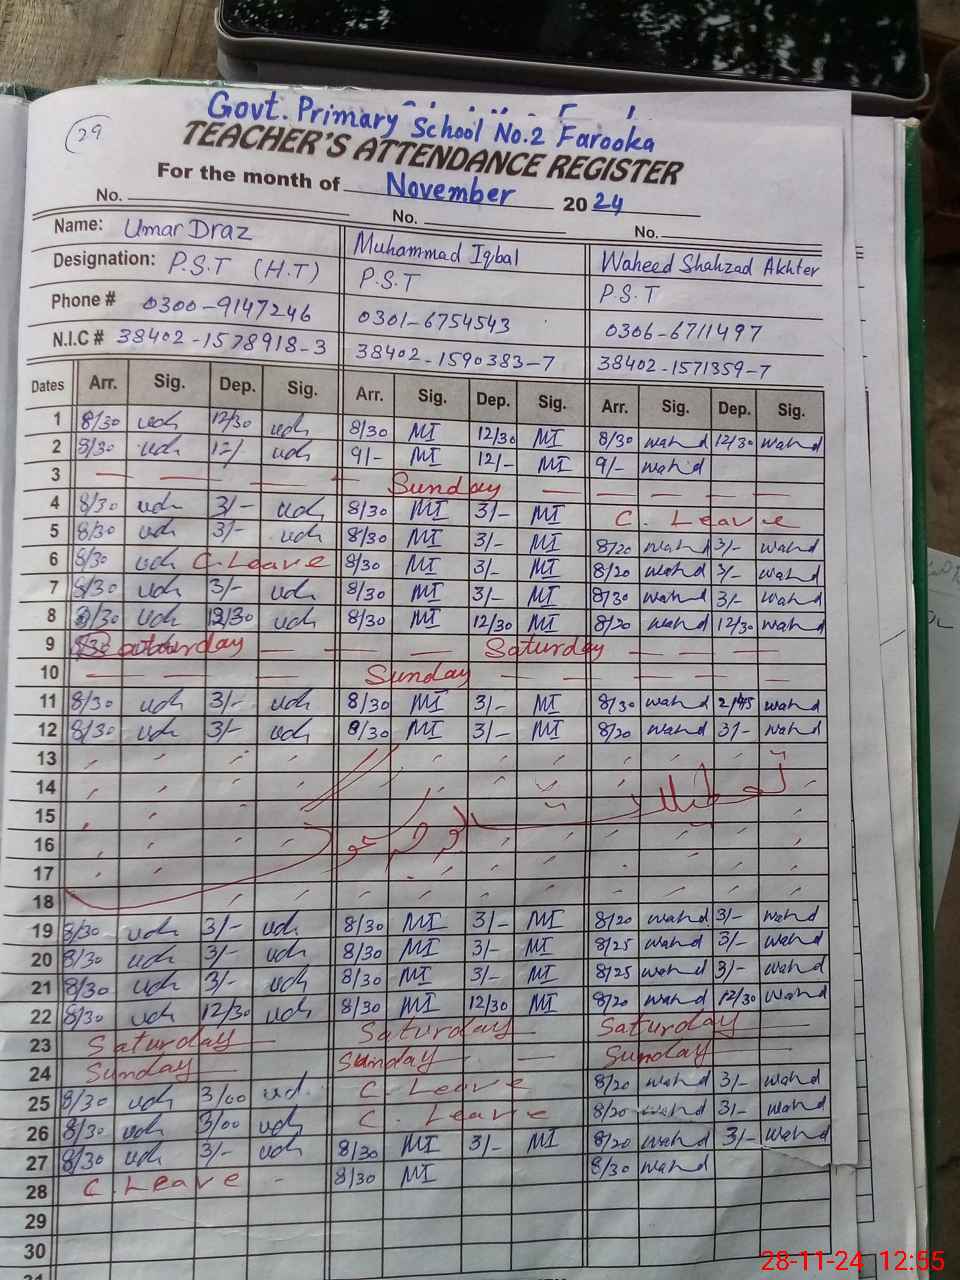 29
Govt. Primary School No.2 Farooka
TEACHER'S ATTENDANCE REGISTER
For the month of November 2024
No. No. No.
Name: Umar Draz Muhammad Iqbal Waheed Shahzad Akhter
Designation: P.S.T (H.T) P.S.T P.S.T
Phone # 0300-9147246 0301-6754543 0306-6711497
N.I.C # 38402-1578918-3 38402-1590383-7 38402-1571359-7
Dates Arr. Sig. Dep. Sig. Arr. Sig. Dep. Sig. Arr. Sig. Dep. Sig.
1 8/30 udh 12/30 udh 8/30 MI 12/30 MI 8/30 wahd 12/30 wahd
2 8/30 udh 12/- udh 9/- MI 12/- MI 9/- wahd
3 — — — — Sunday — — — — —
4 8/30 udh 3/- udh 8/30 MI 3/- MI C. Leave
5 8/30 udh 3/- udh 8/30 MI 3/- MI 8/20 wahd 3/- wahd
6 8/30 udh C.Leave 8/30 MI 3/- MI 8/20 wahd 3/- wahd
7 8/30 udh 3/- udh 8/30 MI 3/- MI 8/30 wahd 3/- wahd
8 8/30 udh 12/30 udh 8/30 MI 12/30 MI 8/20 wahd 12/30 wahd
9 Saturday — — — Saturday — — — —
10 — — — — Sunday — — — — —
11 8/30 udh 3/- udh 8/30 MI 3/- MI 8/30 wahd 2/45 wahd
12 8/30 udh 3/- udh 8/30 MI 3/- MI 8/20 wahd 3/- wahd
13
14
15
تعطیلات بوجہ سموگ
16
17
18
19 8/30 udh 3/- udh 8/30 MI 3/- MI 8/20 wahd 3/- wahd
20 8/30 udh 3/- udh 8/30 MI 3/- MI 8/25 wahd 3/- wahd
21 8/30 udh 3/- udh 8/30 MI 3/- MI 8/25 wahd 3/- wahd
22 8/30 udh 12/30 udh 8/30 MI 12/30 MI 8/20 wahd 12/30 wahd
23 Saturday — Saturday — Saturday —
24 Sunday — Sunday — Sunday —
25 8/30 udh 3/00 ud. C. Leave 8/20 wahd 3/- wahd
26 8/30 udh 3/00 udh C. Leave 8/20 wahd 3/- wahd
27 8/30 udh 3/- udh 8/30 MI 3/- MI 8/20 wahd 3/- wahd
28 C. Leave - 8/30 MI 8/30 wahd
29
30
28-11-24 12:55